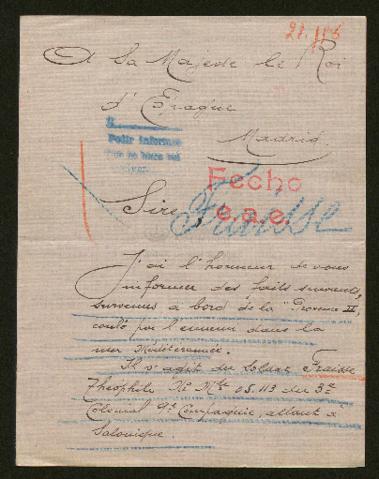 21.115
A Sa Majesté le Roi
d'Espagne
Madrid
Pedir informe
Fecho
e.a.e.
Sire,
Fraisse
J'ai l'honneur de vous
informer des faits suivants,
survenus a bord de la "Provence II",
coulé par l'ennemi dans la
mer Méditerranée.
Il s'agit du Soldat Fraisse
Théophile Nº Mle 05.113 du 3e
Colonial 9e Compagnie, allant à
Salonique.